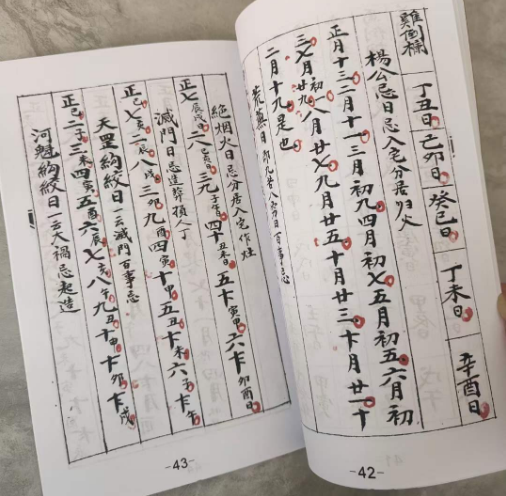 丁丑日 己卯日 癸巳日 丁未日 辛酉日
楊公忌日忌入宅分居归火
正月十三二月十一三月初九四月初七五月初五六月初
三七月初一廿九八月廿七九月廿五十月廿三卞月廿一十
二月十九是也
荒蕪日
-42-
絕烟火日忌分居入宅作灶
正七辰戌日二八巳亥日三九子午日四十丑未日五卞寅申日六卞卯酉日
滅門日忌造葬損人丁
正巳七亥二辰八戌三卯九酉四寅十申五丑卞未六子卞午
天罡絢絞日一云滅門百事忌
正巳二子三未四寅五酉六辰七亥八午九丑十申卞卯卞戌
河魁絢絞日一云人禍忌起造
-43-